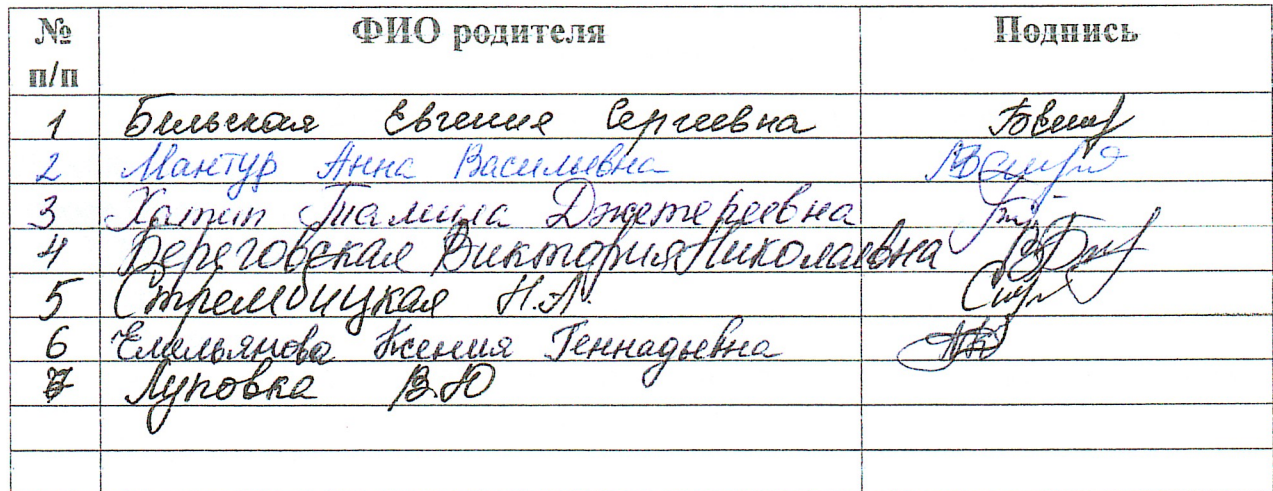 № п/п ФИО родителя Подпись
1 Бельская Евгения Сергеевна
2 Мантур Анна Васильевна
3 Хатип Талила Джетереевна
4 Береговская Виктория Николаевна
5 Стрембицкая Н.Л.
6 Емельянова Ксения Геннадьевна
7 Луповка В.Ю